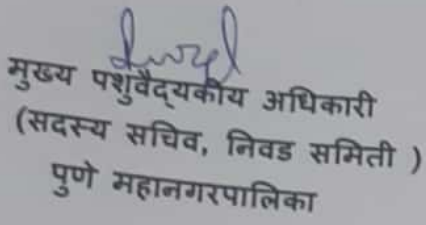 मुख्य पशुवैद्यकीय अधिकारी
(सदस्य सचिव, निवड समिती )
पुणे महानगरपालिका